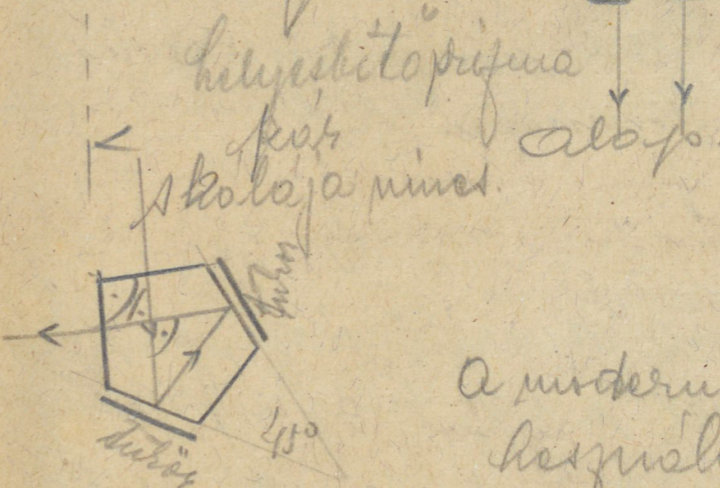 helyesbítőprizma
kör
skálája nincs.
alap
tükör
45°
tükör
A modern
használ